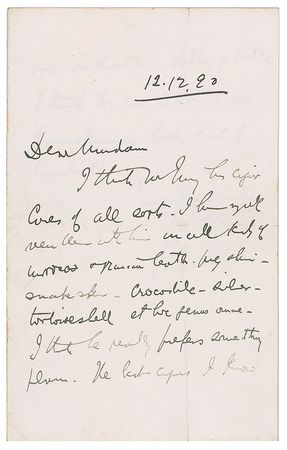 12.12.90
Dear Madam
I think has cigar
Cases of all sorts. I have myself
seen with him in all kinds of
morocco & russian leather. pig skin -
snake skin - Crocodile - silver -
tortoiseshell et hoc genus omne -
I think he really prefers something
plain. He I know